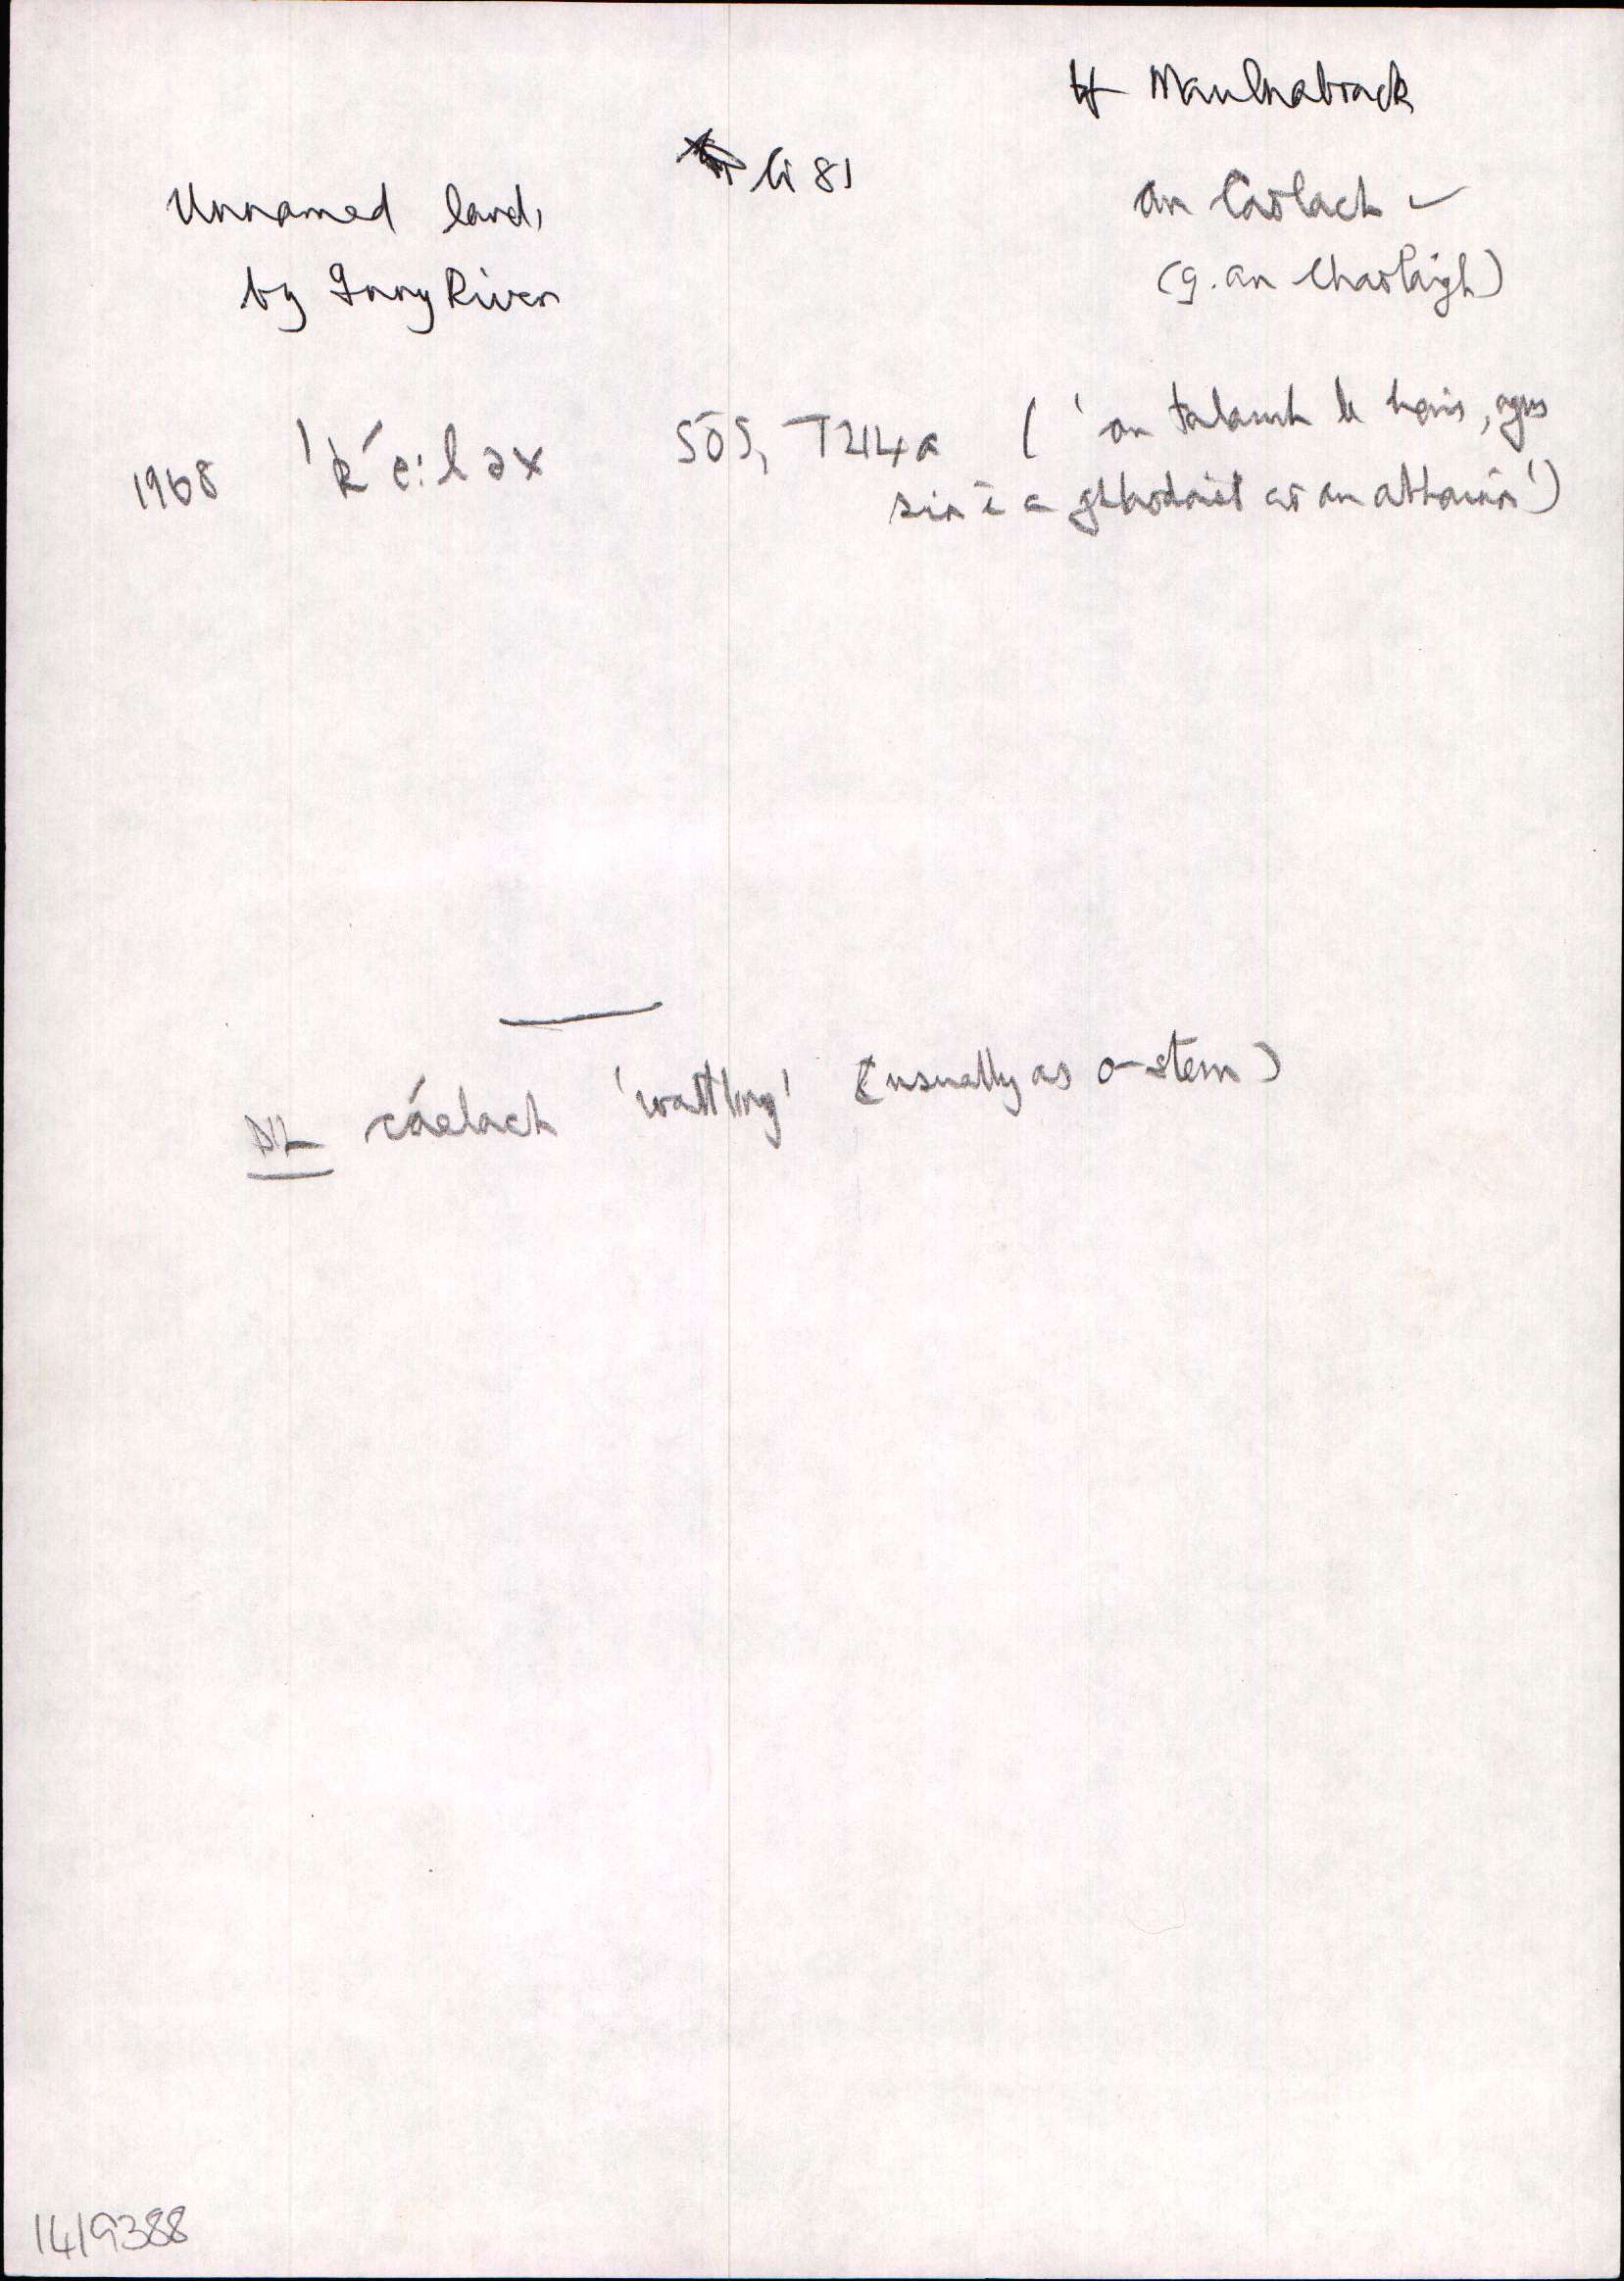 tl Maulnabrack
li 81
Unnamed land,
by Inny River
An Caolach ✓
(g. an Chaolaigh)
1968 ˈḱe:ləx SÓS, T214a ('an talamh le hais, agus
sin é a ghlaodar ar an abhainn')
DIL cáelach 'wattling' (usually as o-stem)
1419388